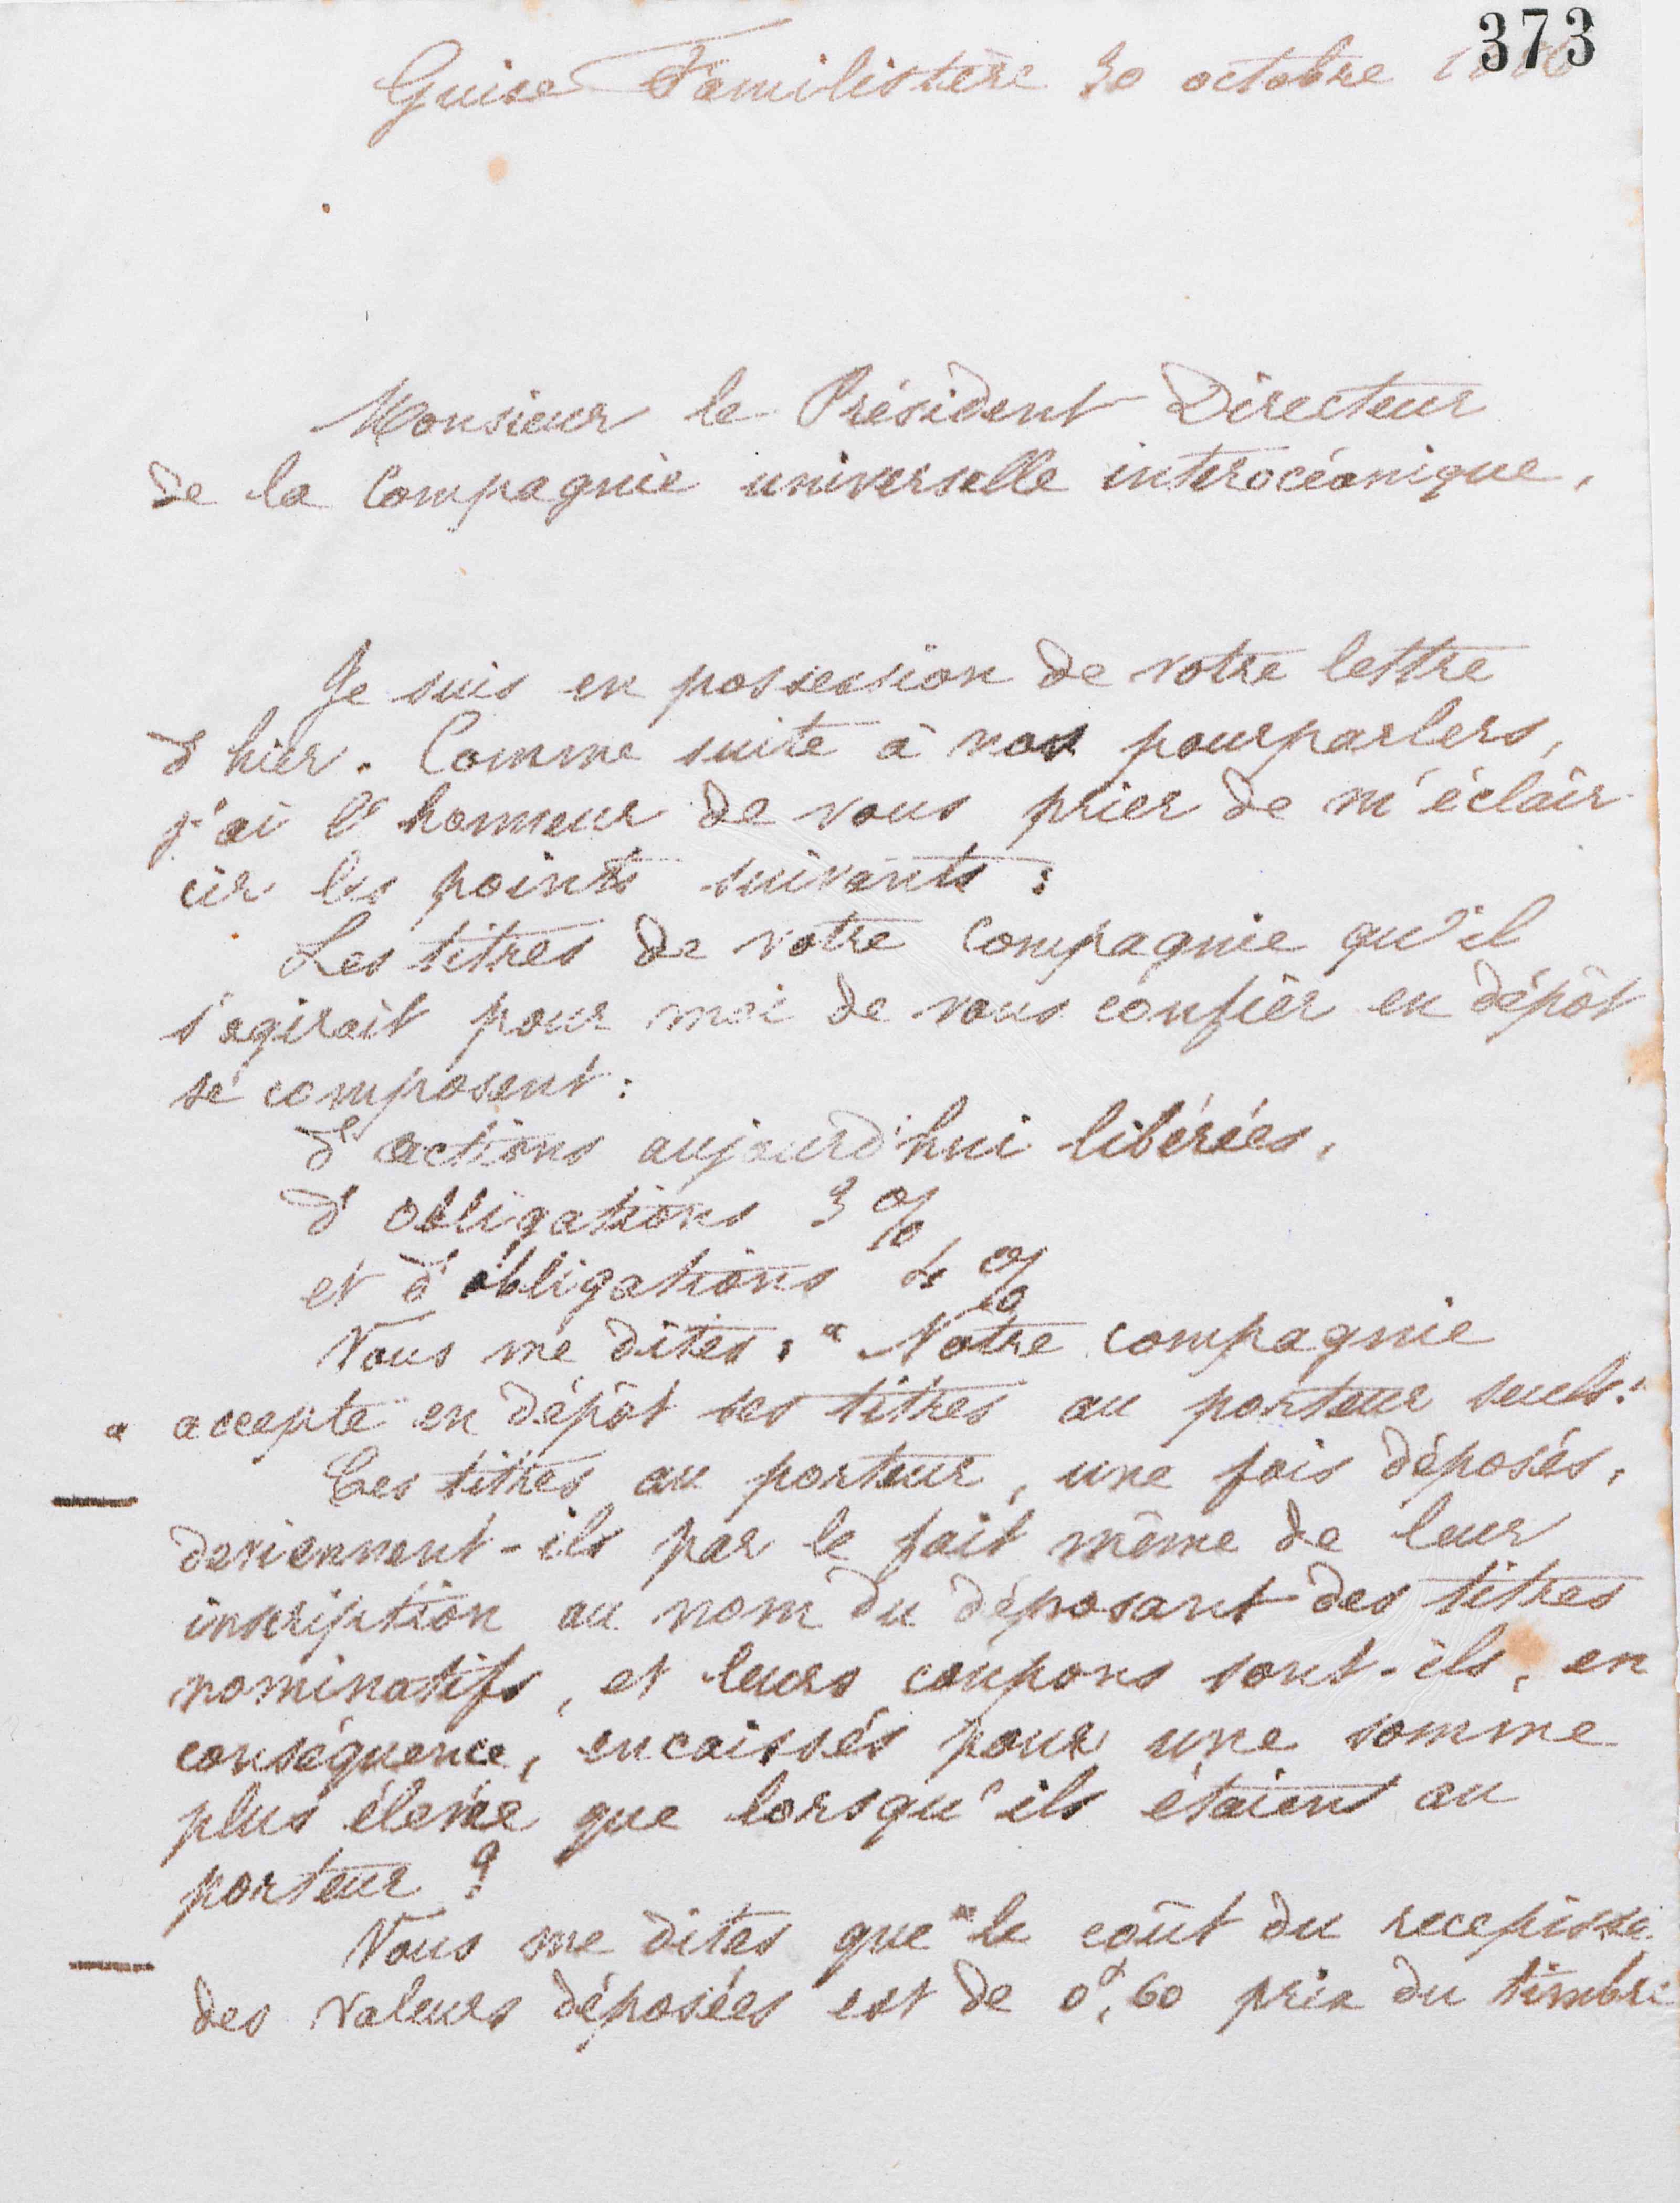 373
Guise Familistère 30 octobre
Monsieur le Président Directeur
de la Compagnie universelle interocéanique,
Je suis en possession de votre lettre
d'hier. Comme suite à nos pourparlers,
j'ai l'honneur de vous prier de m'éclair
cir les points suivants :
Les titres de votre Compagnie qu'il
s'agirait pour moi de vous confier en dépôt
se composent :
d'actions aujourd'hui libérées,
d'obligations 3 %
et d'obligations 4 %
Vous me dites : " Notre compagnie
" accepte en dépôt ses titres au porteur seuls."
Ces titres au porteur, une fois déposés,
deviennent-ils par le fait même de leur
inscription au nom du déposant des titres
nominatifs, et leurs coupons sont-ils, en
conséquence, encaissés pour une somme
plus élevée que lorsqu'ils étaient au
porteur ?
Vous me dites que "le coût du recepissé
des valeurs déposées est de 0f,60 prix du timbre